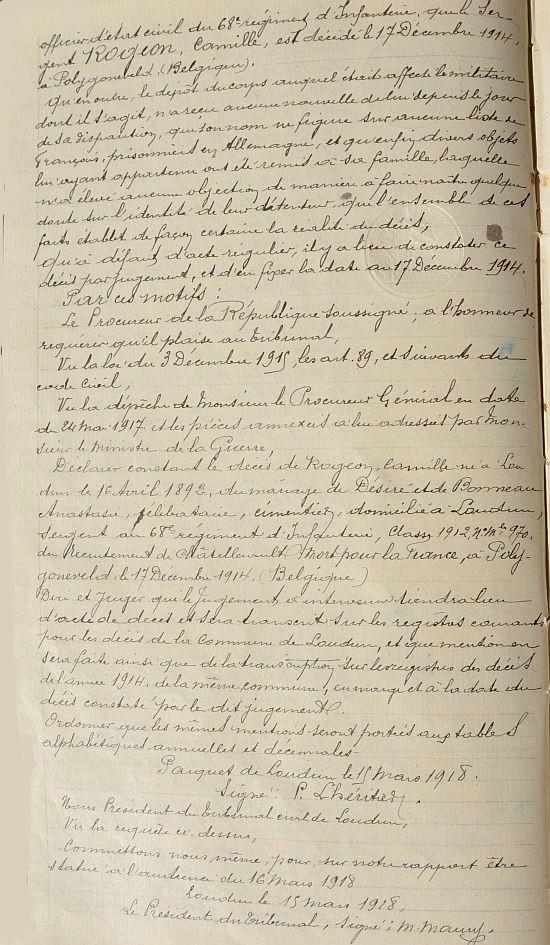 officier d'état civil du 68e régiment d'Infanterie, que le Ser-
gent ROGEON, Camille, est décédé le 17 Décembre 1914,
à Polygoneveld (Belgique).
qu'en outre, le dépôt du corps auquel était affecté le militaire
dont il s'agit, n'a reçu aucune nouvelle de lui depuis le jour
de sa disparition, que son nom ne figure sur aucune liste de
Français, prisonniers en Allemagne, et qu'enfin divers objets
lui ayant appartenu ont été remis à sa famille, laquelle
n'a élevé aucune objection de manière à faire naître quelque
doute sur l'identité de leur détenteur, que l'ensemble de ces
faits établit de façon certaine la réalité du décès;
qu'à défaut d'acte régulier, il y a lieu de constater ce
décès par jugement, et d'en fixer la date au 17 Décembre 1914.
Par ces motifs:
Le Procureur de la République soussigné; a l'honneur de
requérer qu'il plaise au Tribunal,
Vu la loi du 3 Décembre 1915, les art. 89, et suivants du
code civil,
Vu la dépêche de Monsieur le Procureur Général en date
du 24 Mai 1917 et les pièces annexées à lui adressées par Mon-
sieur le Ministre de la Guerre,
Déclarer constant le décès de Rogeon, Camille né à Lou
dun le 16 Avril 1892, du mariage de Désiré et de Bonneau
Anastasie, célibataire, cimentier, domicilié à Loudun,
Sergent au 68e régiment d'Infanterie, Classe 1912 No Mle 970.
du Recrutement de Châtellerault Mort pour la France, à Poly-
goneveld, le 17 Décembre 1914, (Belgique)
Dire et Juger que le Jugement à intervenir tiendra lieu
d'acte de décès et sera transcrit sur les registres courants
pour les décès de la Commune de Loudun, et que mention en
sera faite ainsi que de la transcription sur les registres des décès
de l'année 1914. de la même commune, en marge et à la date du
décès constaté par le dit jugement.
Ordonner que les mêmes mentions seront portées aux tables
alphabétiques annuelles et décennales.
Parquet de Loudun le 15 Mars 1918.
Signé: P. Lhéritier.
Nous Président du Tribunal civil de Loudun,
Vu la requête ci dessus,
Commettons nous même, pour, sur notre rapport être
statué à l'audience du 16 Mars 1918
Loudun le 15 Mars 1918,
Le Président du Tribunal, Signé: M. Maury.